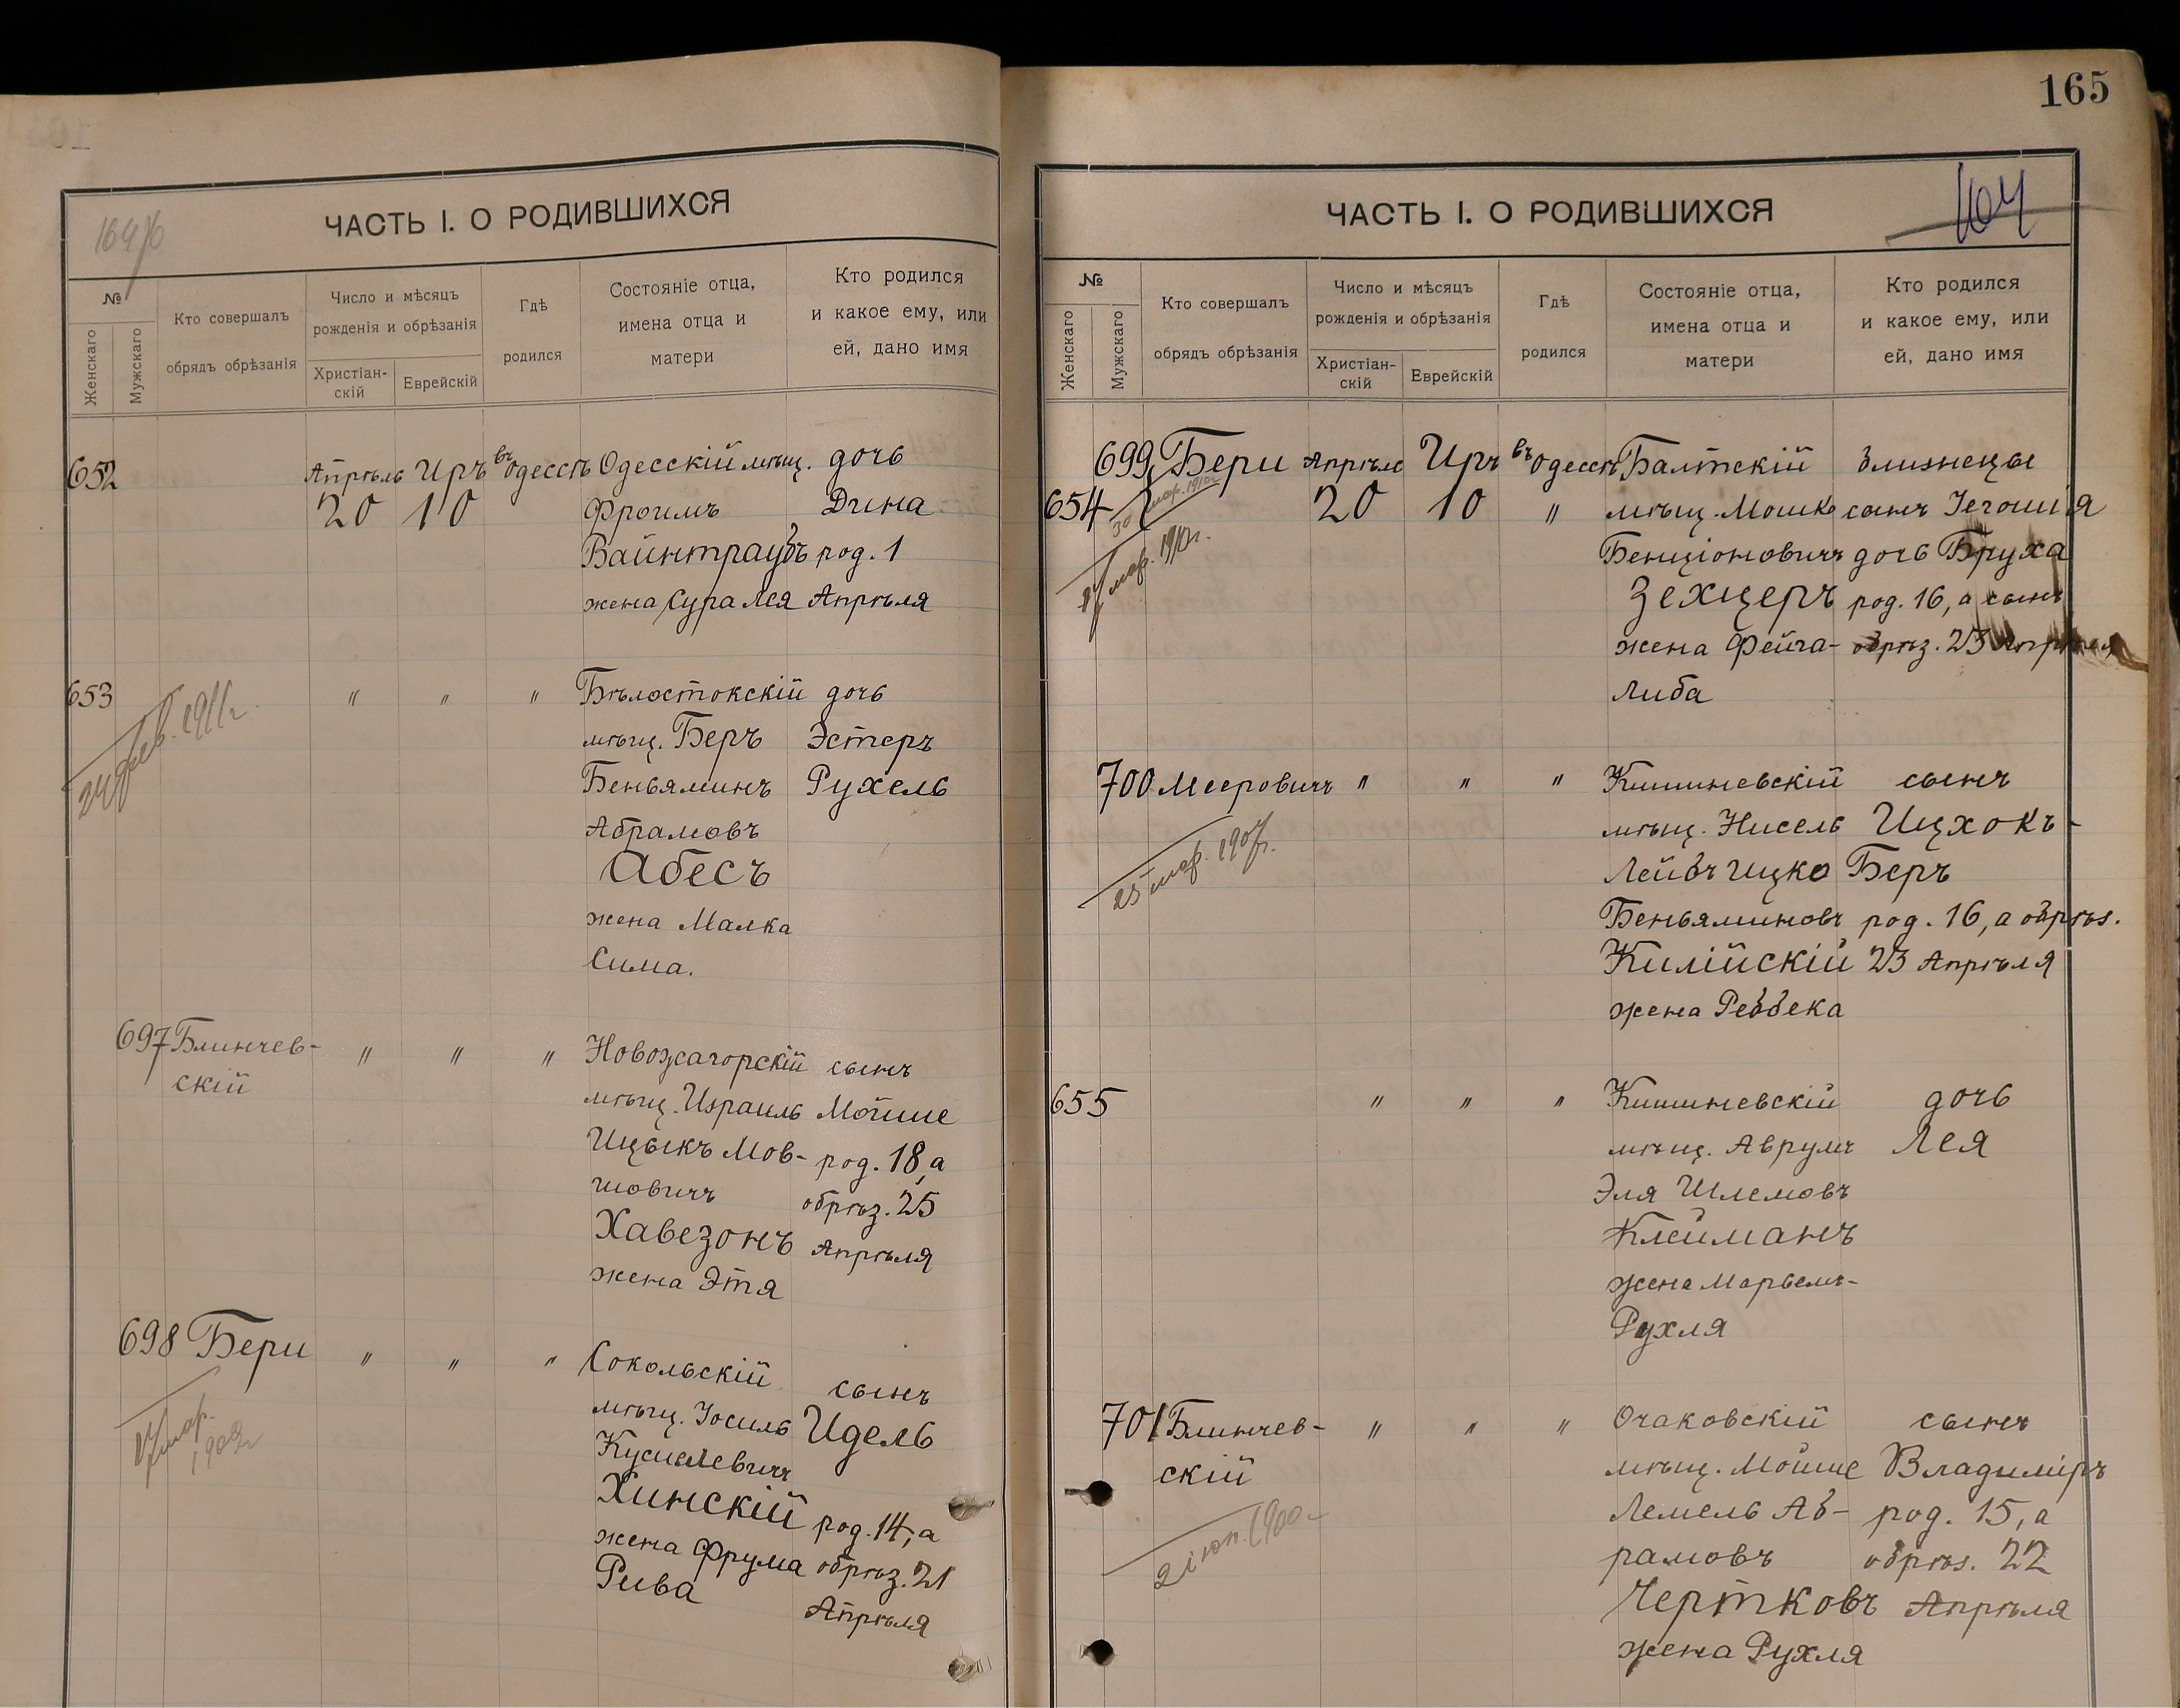 165
ЧАСТЬ I. О РОДИВШИХСЯ
№
Женскаго
Мужскаго
Кто совершалъ
обрядъ обрѣзанія
Число и мѣсяцъ
рожденія и обрѣзанія
Христіан-
скій
Еврейскій
Гдѣ
родился
Состояніе отца,
имена отца и
матери
Кто родился
и какое ему, или
ей, дано имя
652 Апрѣль Иръ въ Одессѣ Одесскій мѣщ. дочь
20 10 Фроимъ Дина
Вайнтраубъ род. 1
жена Сура Лея Апрѣля
653 " " " Бѣлостокскій дочь
мѣщ. Беръ Эстеръ
Беньяминъ Рухель
Абрамовъ
Абесъ
жена Малка
Сима.
24 фев. 1911 г.
697 Блинчев- " " " Новожагорскій сынъ
скій мѣщ. Израиль Мойше
Ицыкъ Мов- род. 18, а
шовичъ обрѣз. 25
Хавезонъ Апрѣля
жена Этя
698 Бери " " " Сокольскій сынъ
мѣщ. Іосиль Идель
Кусиелевичъ
Хинскій род. 14, а
жена Фрума обрѣз. 21
Рива Апрѣля
ЧАСТЬ I. О РОДИВШИХСЯ
№
Женскаго
Мужскаго
Кто совершалъ
обрядъ обрѣзанія
Число и мѣсяцъ
рожденія и обрѣзанія
Христіан-
скій
Еврейскій
Гдѣ
родился
Состояніе отца,
имена отца и
матери
Кто родился
и какое ему, или
ей, дано имя
699 Бери Апрѣль Иръ въ Одессѣ Балтскій близнецы
654 20 10 " мѣщ. Мошко сынъ Іегошія
Бенціоновичъ дочь Бруха
Зехцеръ род. 16, а сынъ
жена Фейга- обрѣз. 23 Апрѣля
Либа
30 мар. 1910 г.
мар. 1910 г.
700 Мееровичъ " " " Кишиневскій сынъ
мѣщ. Нисель Ицхокъ-
Лейбъ Ицко Беръ
Беньяминовъ род. 16, а обрѣз.
Килійскій 23 Апрѣля
жена Реввека
25 мар. 1907 г.
655 " " " Кишиневскій дочь
мѣщ. Аврумъ Лея
Эля Шлемовъ
Клейманъ
жена Марьемъ-
Рухля
701 Блинчев- " " " Очаковскій сынъ
скій мѣщ. Мойше Владиміръ
Лемель Аб- род. 15, а
рамовъ обрѣз. 22
Чертковъ Апрѣля
жена Рухля